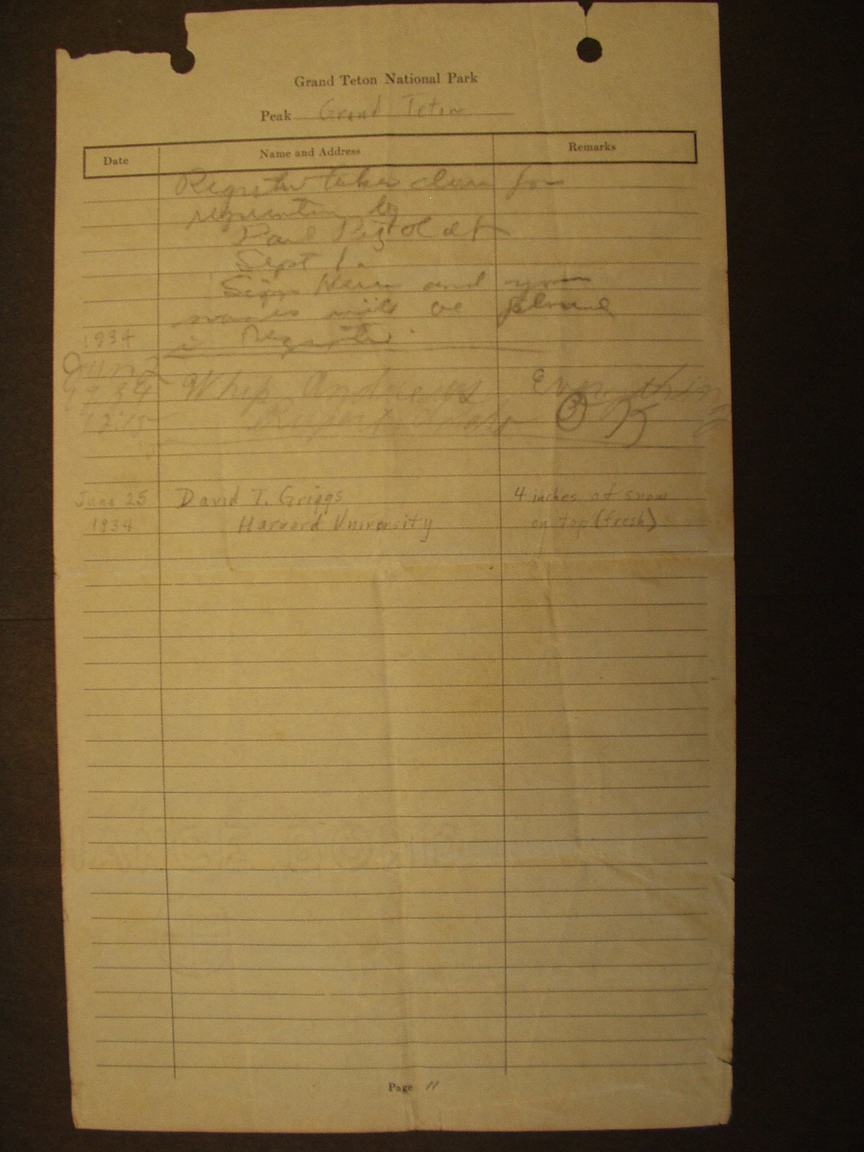 Grand Teton National Park
Peak Grand Teton
Date Name and Address Remarks
Register taken down for
by
Paul Petzoldt
Sept 1.
Sign Here and your
names will be placed
1934 in Register.
June
Whip Andrews Everything
OK
June 25 David T. Griggs 4 inches of snow
1934 Harvard University on top (fresh)
Page 11